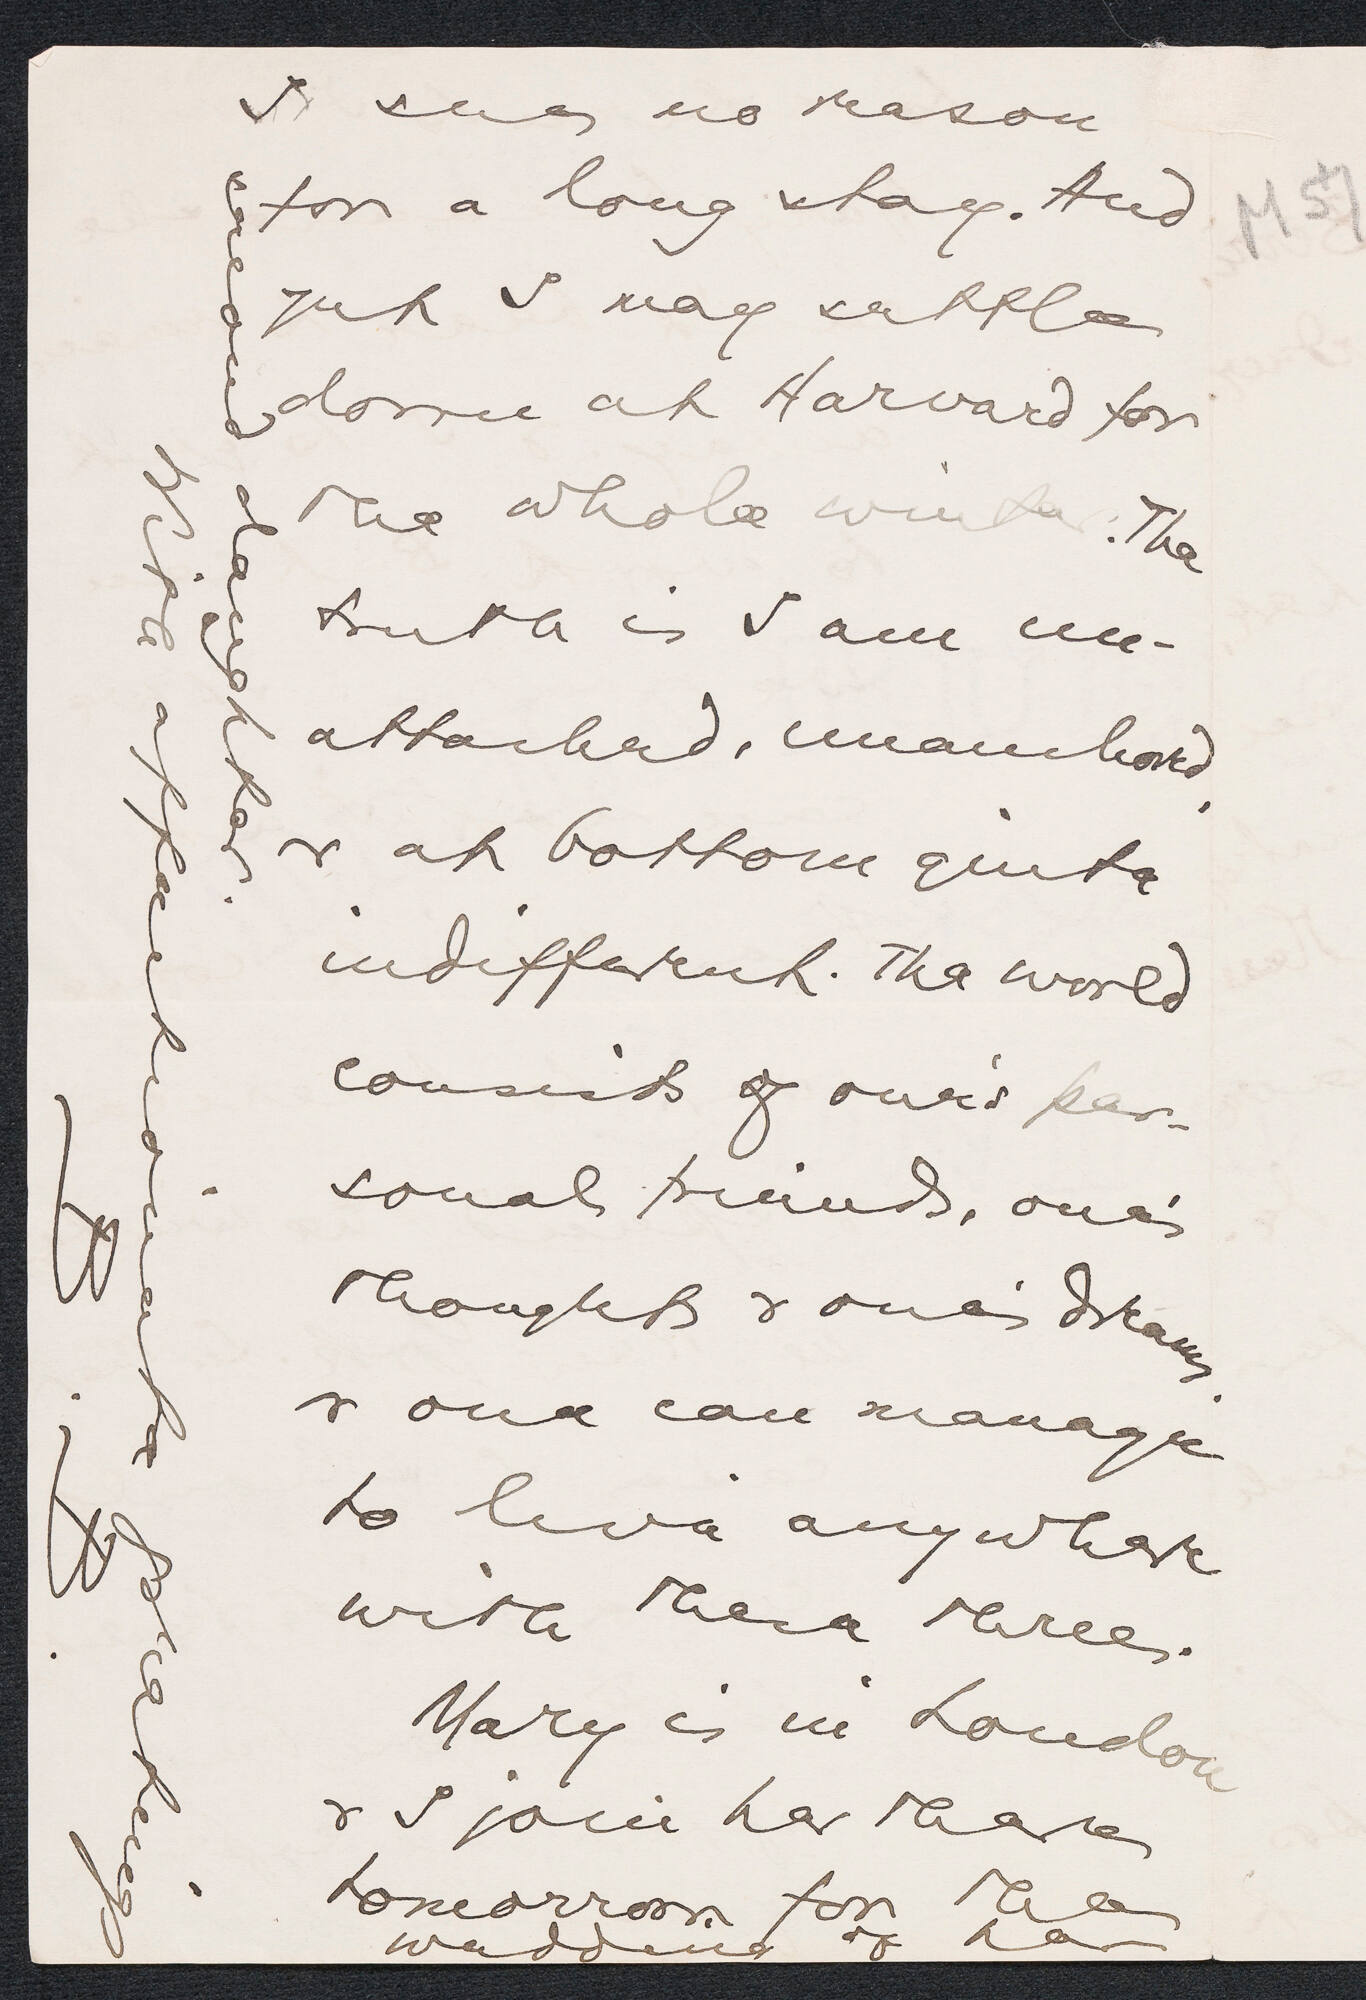 I see no reason
for a long stay. And
yet I may settle
down at Harvard for
the whole winter. The
truth is I am un-
attached, unanchored,
& at bottom quite
indifferent. The world
consists of one's per-
sonal friends, one's
thoughts & one's dreams,
& one can manage
to live anywhere
with these three.
Mary is in London
& I join her there
tomorrow for the
wedding of her
second daughter.
With affectionate greetings
B. B.
M 51